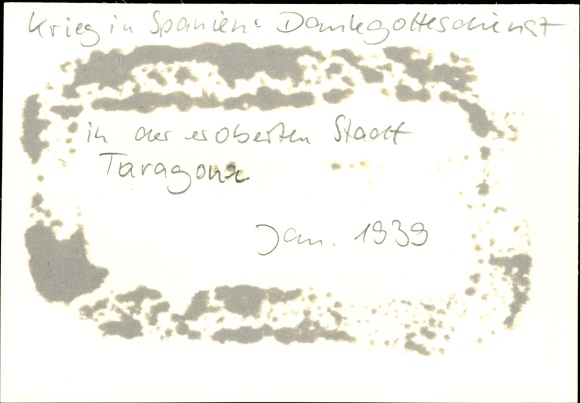 Krieg in Spanien: Dankgottesdienst
in der eroberten Stadt
Taragona
Jan. 1939